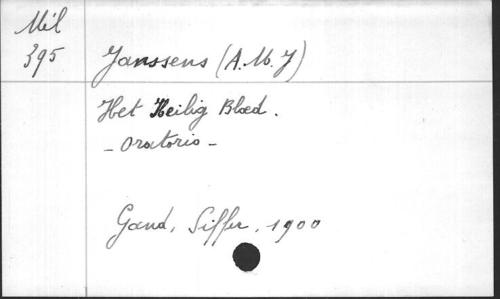 Mil
395
Janssens (A.M.J)
Het Heilig Bloed.
- Oratorio -
Gand, Siffer, 1900